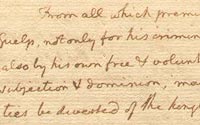 From all which premi
Guelf, not only for his crimin
also by his own free & volunt
subjection & dominion, ma
ties be divested of the king